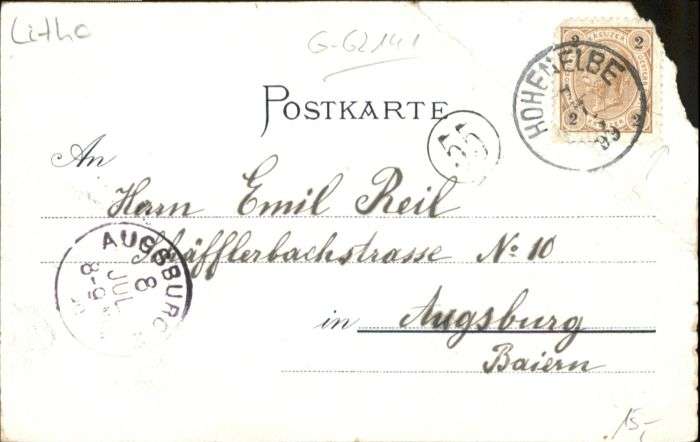 Litho
G-62141
2 2
2 2
HOHENELBE
99
POSTKARTE
55
An
Herrn Emil Reil
Schäfflerbachstrasse No 10
AUGSBURG
8
JUL
8-9
in Augsburg
Baiern
15,-